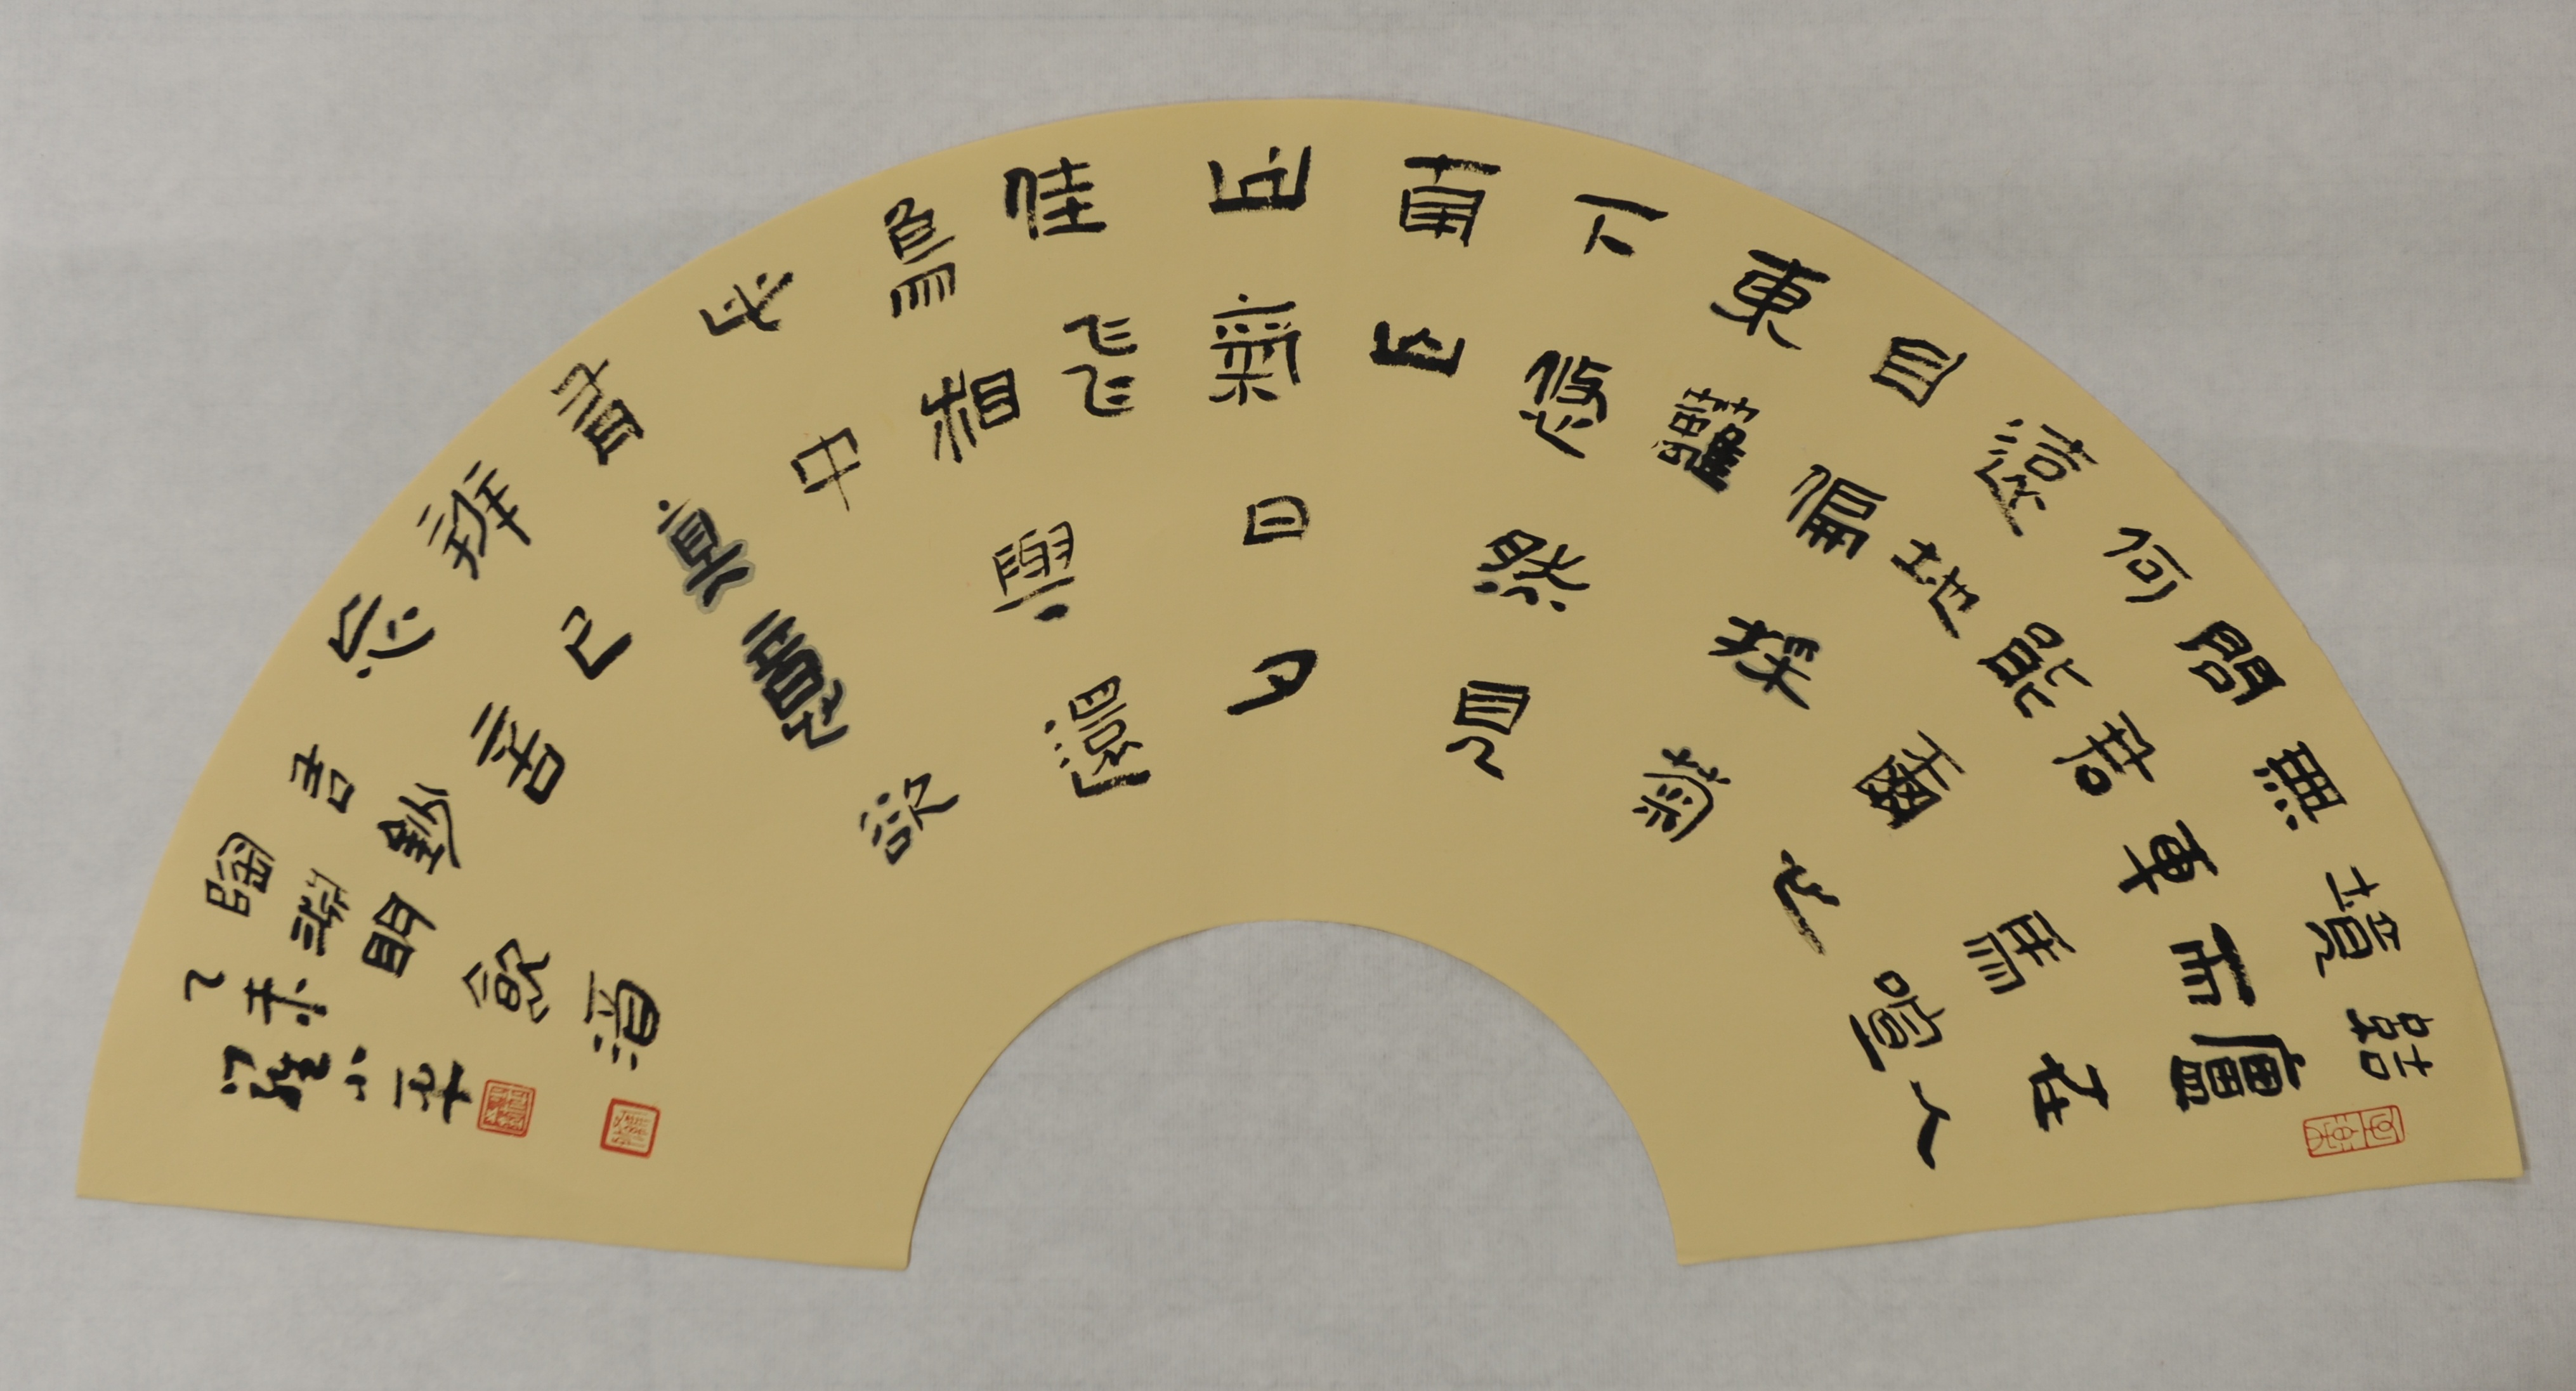 結廬在人
境而
無車馬喧
問君
何能爾心
遠地
自偏採菊
東籬
下悠然見
南山
山氣日夕
佳飛
鳥相與還
此中
有真意欲
辨已
忘言
鈔
陶淵明飲酒
乙未
羅小平